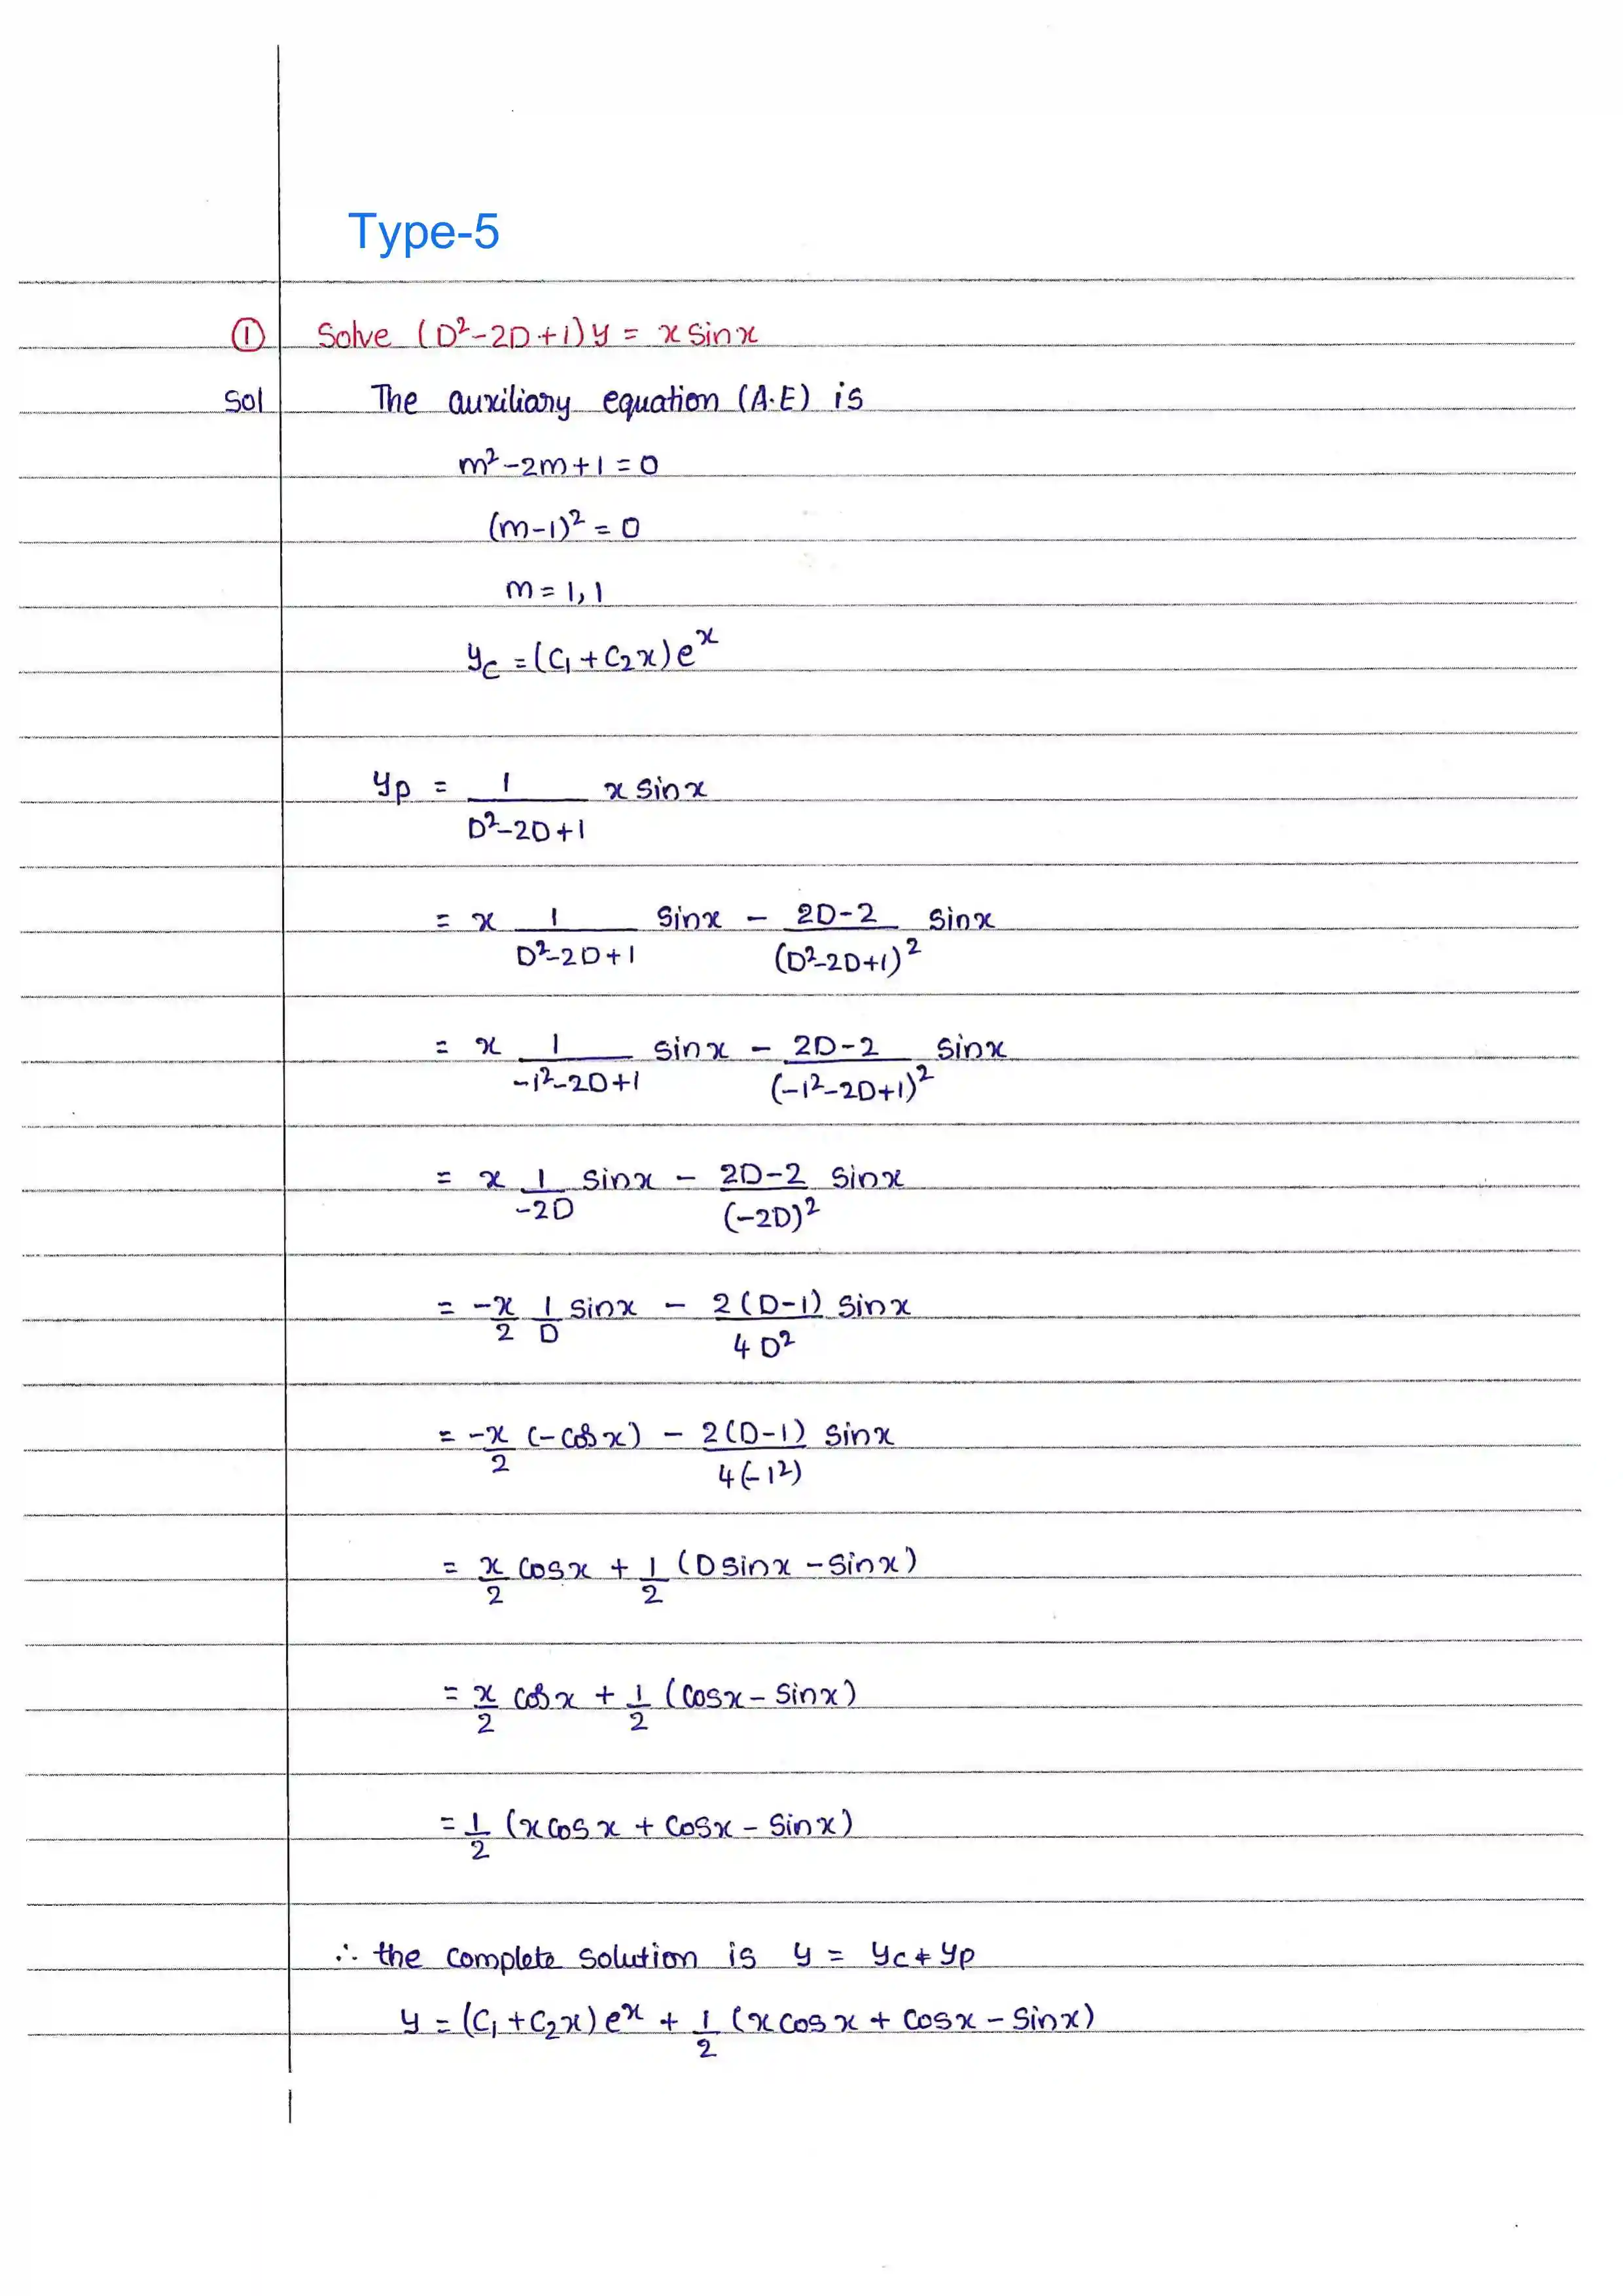 Type-5
① Solve (D²-2D+1)y = x sinx
Sol The auxiliary equation (A.E) is
m²-2m+1=0
(m-1)²=0
m=1,1
y_c = (C₁+C₂x)eˣ
y_p = 1/(D²-2D+1) x sinx
= x 1/(D²-2D+1) sinx - (2D-2)/(D²-2D+1)² sinx
= x 1/(-1²-2D+1) sinx - (2D-2)/(-1²-2D+1)² sinx
= x 1/(-2D) sinx - (2D-2)/(-2D)² sinx
= -x/2 1/D sinx - 2(D-1)/(4D²) sinx
= -x/2 (-cosx) - 2(D-1)/(4(-1²)) sinx
= x/2 cosx + 1/2 (Dsinx - sinx)
= x/2 cosx + 1/2 (cosx - sinx)
= 1/2 (x cosx + cosx - sinx)
∴ the complete solution is y = y_c + y_p
y = (C₁+C₂x)eˣ + 1/2 (x cosx + cosx - sinx)